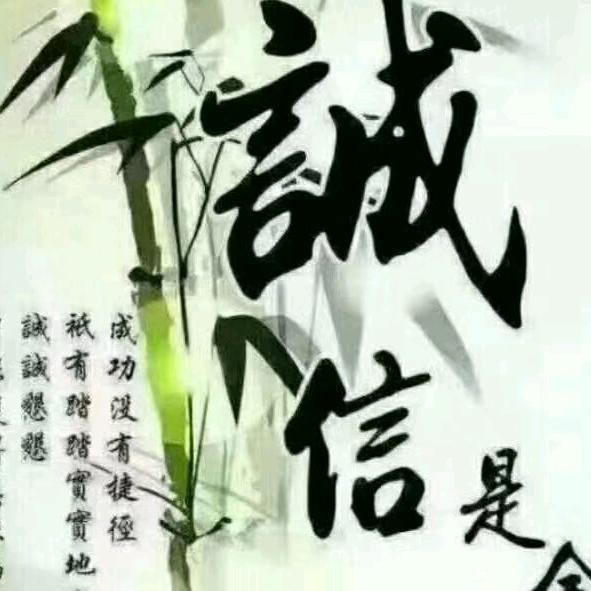 誠
信
是
成功沒有捷徑
祇有踏踏實實地
誠誠懇懇